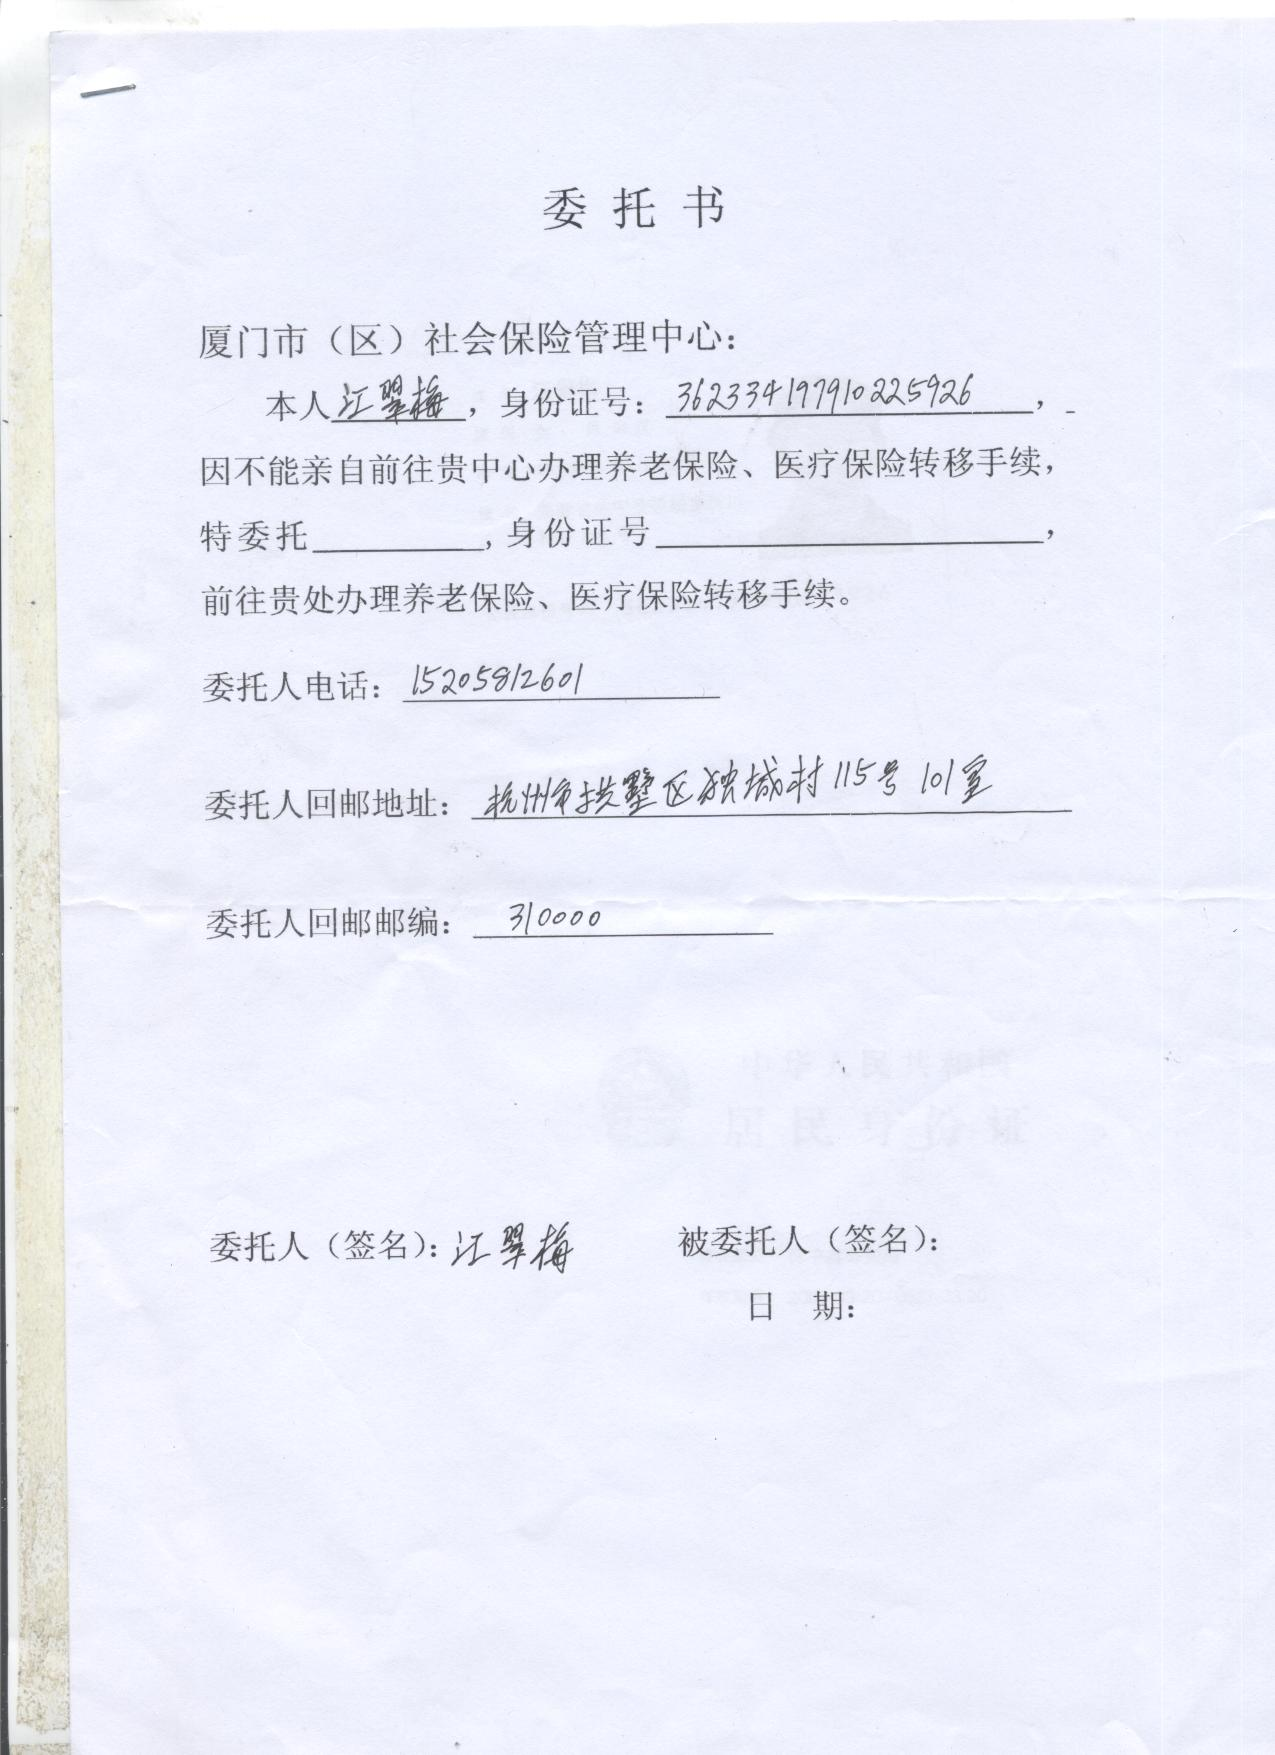 委托书
厦门市（区）社会保险管理中心：
本人江翠梅，身份证号：362334197910225926，
因不能亲自前往贵中心办理养老保险、医疗保险转移手续，
特委托__________，身份证号______________________，
前往贵处办理养老保险、医疗保险转移手续。
委托人电话：15205812601
委托人回邮地址：杭州市拱墅区独城村115号101室
委托人回邮邮编：310000
中华人民共和国
居民身份证
委托人（签名）：江翠梅 被委托人（签名）：
日 期：